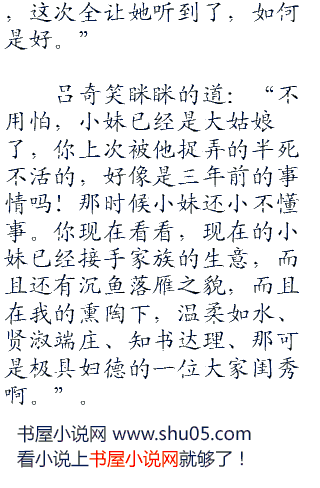 ，这次全让她听到了，如何
是好。”
吕奇笑眯眯的道：“不
用怕，小妹已经是大姑娘
了，你上次被他捉弄的半死
不活的，好像是三年前的事
情吗！那时候小妹还小不懂
事。你现在看看，现在的小
妹已经接手家族的生意，而
且还有沉鱼落雁之貌，而且
在我的熏陶下，温柔如水、
贤淑端庄、知书达理、那可
是极具妇德的一位大家闺秀
啊。”。
书屋小说网 www.shu05.com
看小说上书屋小说网就够了！